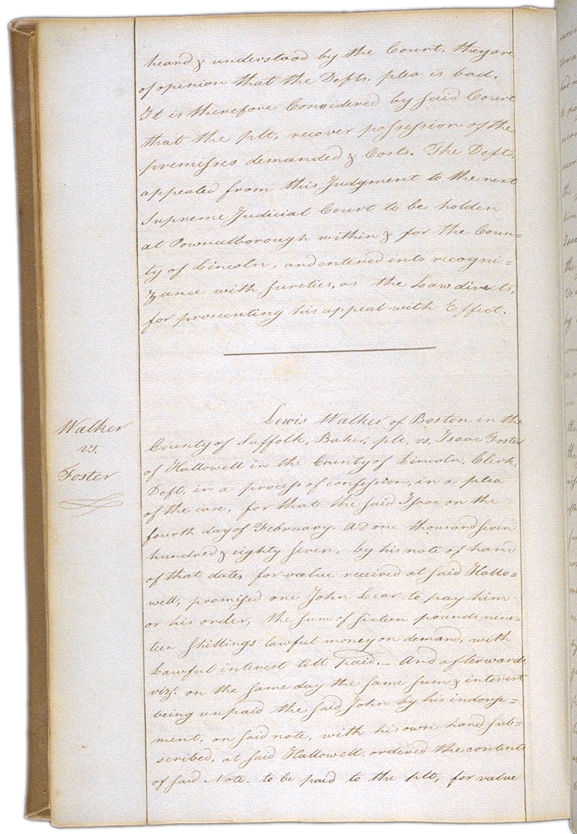 heard & understood by the Court, they are
of opinion that the Defts. plea is bad.
It is therefore Considered by said Court
that the plt, recover possession of the
premisses demanded & Costs. The Deft,
appealed from this Judgment to the next
Supreme Judicial Court to be holden
at Pownalborough within & for the Coun=
ty of Lincoln, and entered into recogni=
zance with sureties, as the Law directs,
for prosecuting his appeal with Effect.
Walker
vs.
Foster
Lewis Walker of Boston in the
County of Suffolk, Baker, plt, vs. Isaac Foster
of Hallowell in the County of Lincoln, Clerk,
Deft, in a process of confession, in a plea
of the case, for that the said Isaac on the
fourth day of February, AD one thousand seven
hundred & eighty seven, by his note of hand
of that date, for value received at said Hallo=
well, promised one John Lear to pay him
or his order, the sum of sixteen pounds nine=
teen shillings lawful money on demand, with
Lawful interest till paid.— And afterwards
vizt. on the same day the same sum & interest
being unpaid the said John by his indorse=
ment, on said note, with his own hand sub=
scribed, at said Hallowell, ordered the contents
of said Note, to be paid to the plt, for value